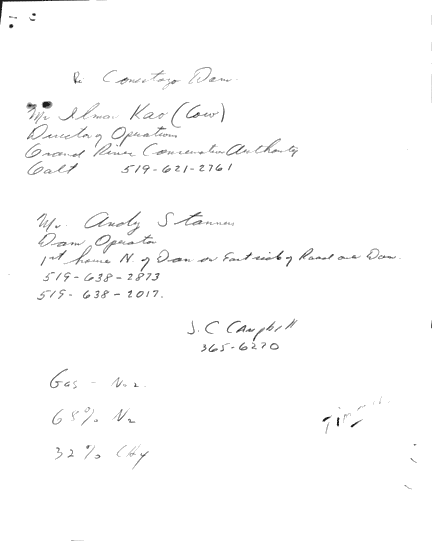 Re Conestogo Dam.
Mr Ilmar Kao (Cow)
Director of Operations
Grand River Conservation Authority
Galt 519-621-2761
Mr. Andy Stanners
Dam Operator
1st house N. of Dam on East side of Road over Dam.
519-638-2873
519-638-2017.
J.C Campbell
365-6270
Gas - No 2.
68% N2
32% CH4